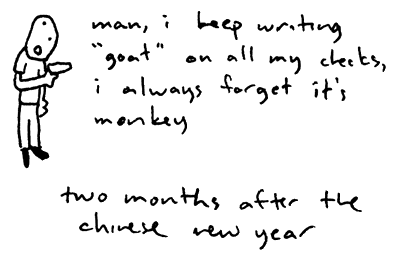 man, i keep writing
"goat" on all my checks,
i always forget it's
monkey
two months after the
chinese new year